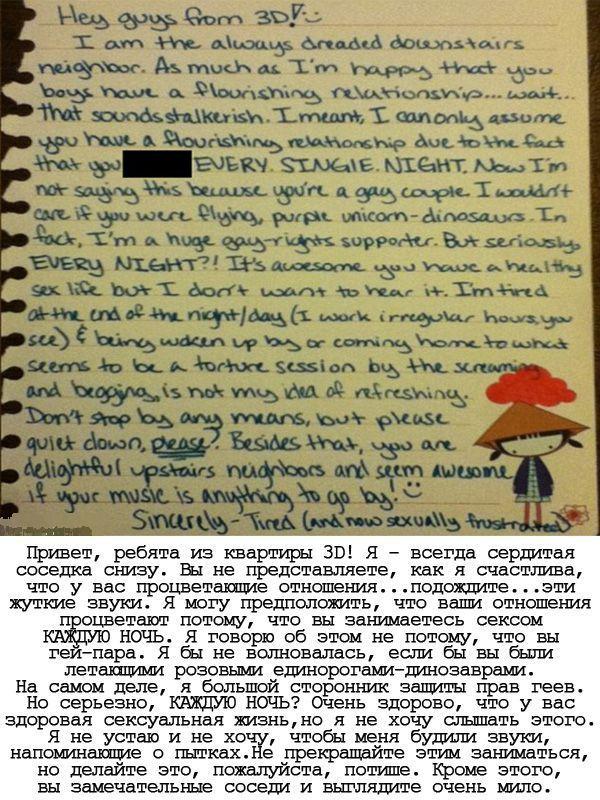 Hey guys from 3D! :)
I am the always dreaded downstairs
neighbor. As much as I'm happy that you
boys have a flourishing relationship... wait...
that sounds stalkerish. I meant, I can only assume
you have a flourishing relationship due to the fact
that you EVERY. SINGLE. NIGHT. Now I'm
not saying this because you're a gay couple. I wouldn't
care if you were flying, purple unicorn-dinosaurs. In
fact, I'm a huge gay-rights supporter. But seriously,
EVERY NIGHT?! It's awesome you have a healthy
sex life but I don't want to hear it. I'm tired
at the end of the night/day (I work irregular hours, you
see) & being woken up by or coming home to what
seems to be a torture session by the screaming
and begging, is not my idea of refreshing.
Don't stop by any means, but please
quiet down, please? Besides that, you are
delightful upstairs neighbors and seem awesome
if your music is anything to go by! :)
Sincerely - Tired (and now sexually frustrated)
Привет, ребята из квартиры 3D! Я – всегда сердитая
соседка снизу. Вы не представляете, как я счастлива,
что у вас процветающие отношения...подождите...эти
жуткие звуки. Я могу предположить, что ваши отношения
процветают потому, что вы занимаетесь сексом
КАЖДУЮ НОЧЬ. Я говорю об этом не потому, что вы
гей-пара. Я бы не волновалась, если бы вы были
летающими розовыми единорогами-динозаврами.
На самом деле, я большой сторонник защиты прав геев.
Но серьезно, КАЖДУЮ НОЧЬ? Очень здорово, что у вас
здоровая сексуальная жизнь,но я не хочу слышать этого.
Я не устаю и не хочу, чтобы меня будили звуки,
напоминающие о пытках.Не прекращайте этим заниматься,
но делайте это, пожалуйста, потише. Кроме этого,
вы замечательные соседи и выглядите очень мило.